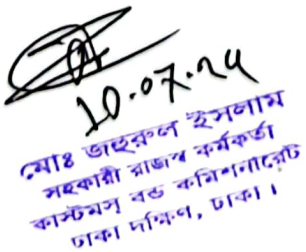 10.07.24
মোঃ জহুরুল ইসলাম
সহকারী রাজস্ব কর্মকর্তা
কাস্টমস্ বন্ড কমিশনারেট
ঢাকা দক্ষিণ, ঢাকা।